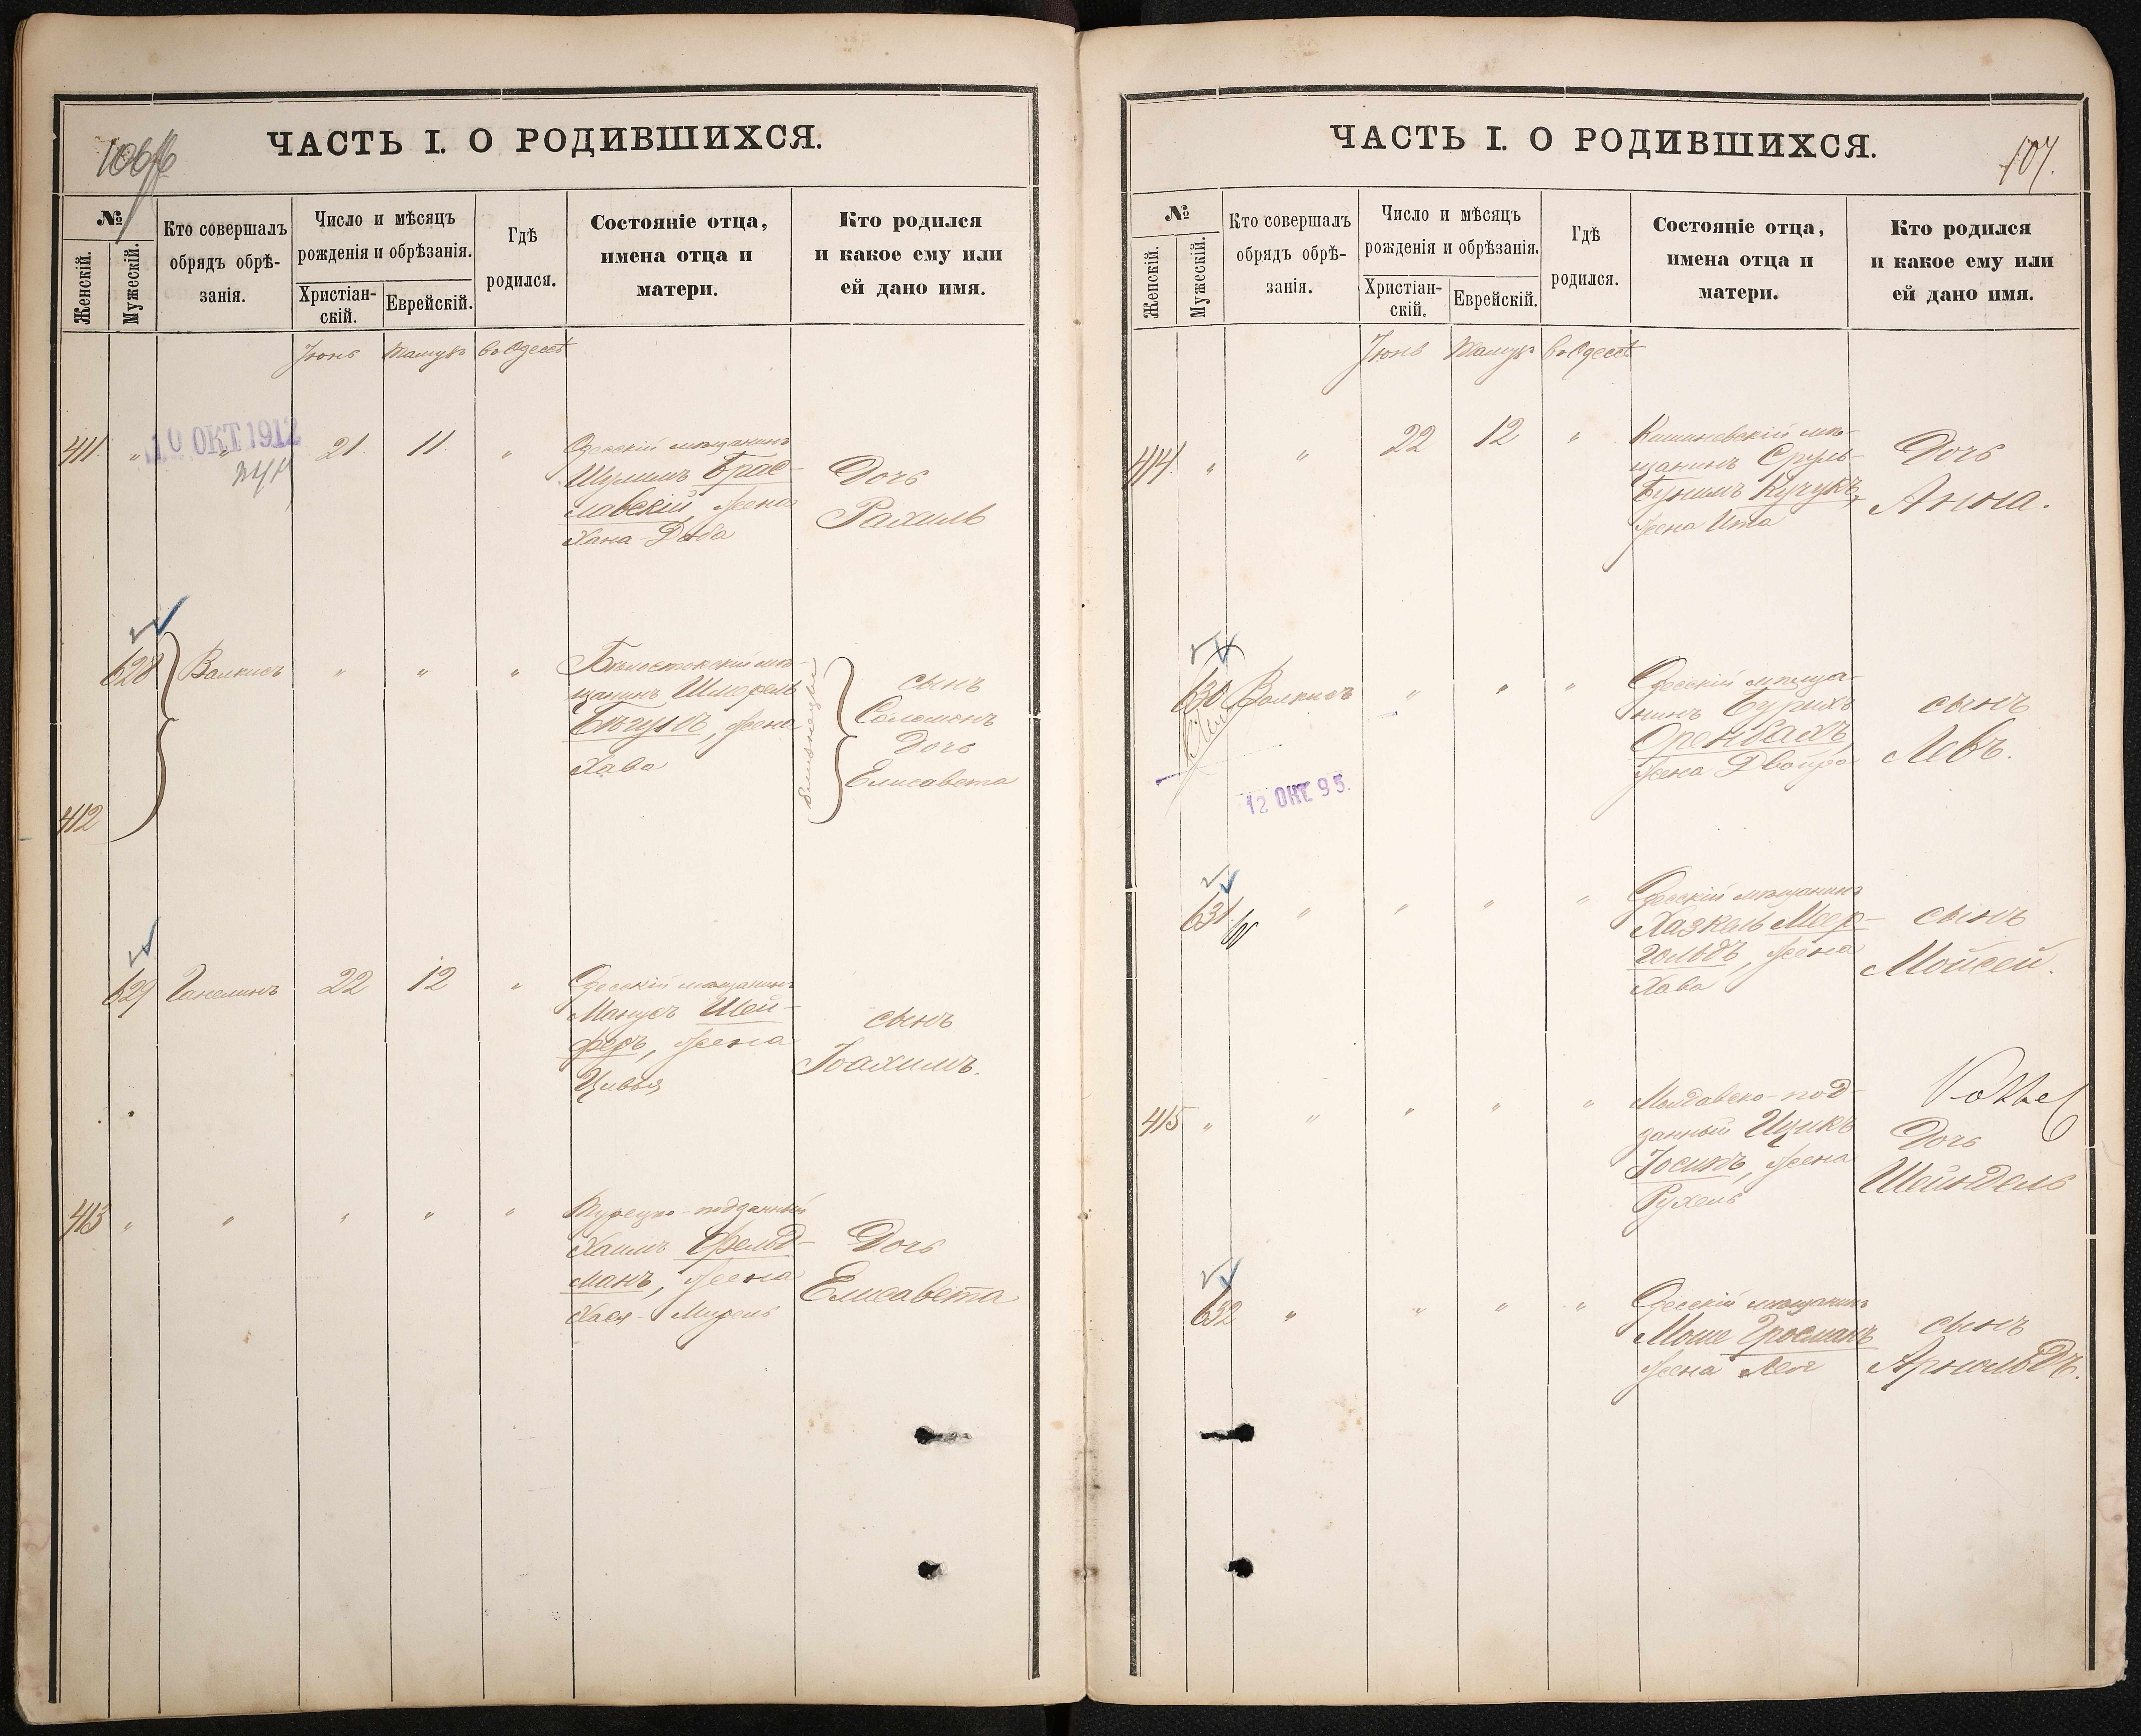 ЧАСТЬ I. О РОДИВШИХСЯ.
№
Женскій.
Мужескій.
Кто совершалъ
обрядъ обрѣ-
занія.
Число и мѣсяцъ
рожденія и обрѣзанія.
Христіан-
скій.
Еврейскій.
Гдѣ
родился.
Состояніе отца,
имена отца и
матери.
Кто родился
и какое ему или
ей дано имя.
Іюнь Тамузъ въ Одессѣ
10 ОКТ 1912
411. " " 21 11 "
Одесскій мѣщанинъ
Шулимъ Брас-
лавскій, жена
Хана-Доба
Дочь
Рахиль
628 Валкисъ " " "
412
Бѣлостокскій мѣ-
щанинъ Шмерель
Бѣгунъ, жена
Хава
близнецы
сынъ
Соломонъ
Дочь
Елисавета
629 Ганелинъ 22 12 "
Одесскій мѣщанинъ
Манусъ Шей-
феръ, жена
Цивья
сынъ
Іоахимъ.
413 " " " " "
Турецко-подданный
Хаимъ Фельд-
манъ, жена
Хася-Мирель
Дочь
Елисавета
ЧАСТЬ I. О РОДИВШИХСЯ.
107.
№
Женскій.
Мужескій.
Кто совершалъ
обрядъ обрѣ-
занія.
Число и мѣсяцъ
рожденія и обрѣзанія.
Христіан-
скій.
Еврейскій.
Гдѣ
родился.
Состояніе отца,
имена отца и
матери.
Кто родился
и какое ему или
ей дано имя.
Іюнь Тамузъ въ Одессѣ
414 " " 22 12 "
Кишиневскій мѣ-
щанинъ Сруль-
Бунимъ Кучукъ,
жена Ита
Дочь
Анна.
630 Валкисъ " " "
12 ОКТ 95.
Одесскій мѣща-
нинъ Бурихъ
Оренбахъ,
жена Двойра
сынъ
Левъ.
631 " " " "
Одесскій мѣщанинъ
Хазкель Меер-
гольдъ, жена
Хава
сынъ
Мойсей.
415 " " " " "
Молдавско-под-
данный Ицикъ
Іосипъ, жена
Рухель
Дочь
Шейндель
632 " " " "
Одесскій мѣщанинъ
Моше Гросманъ
жена Лея
сынъ
Арнольдъ.